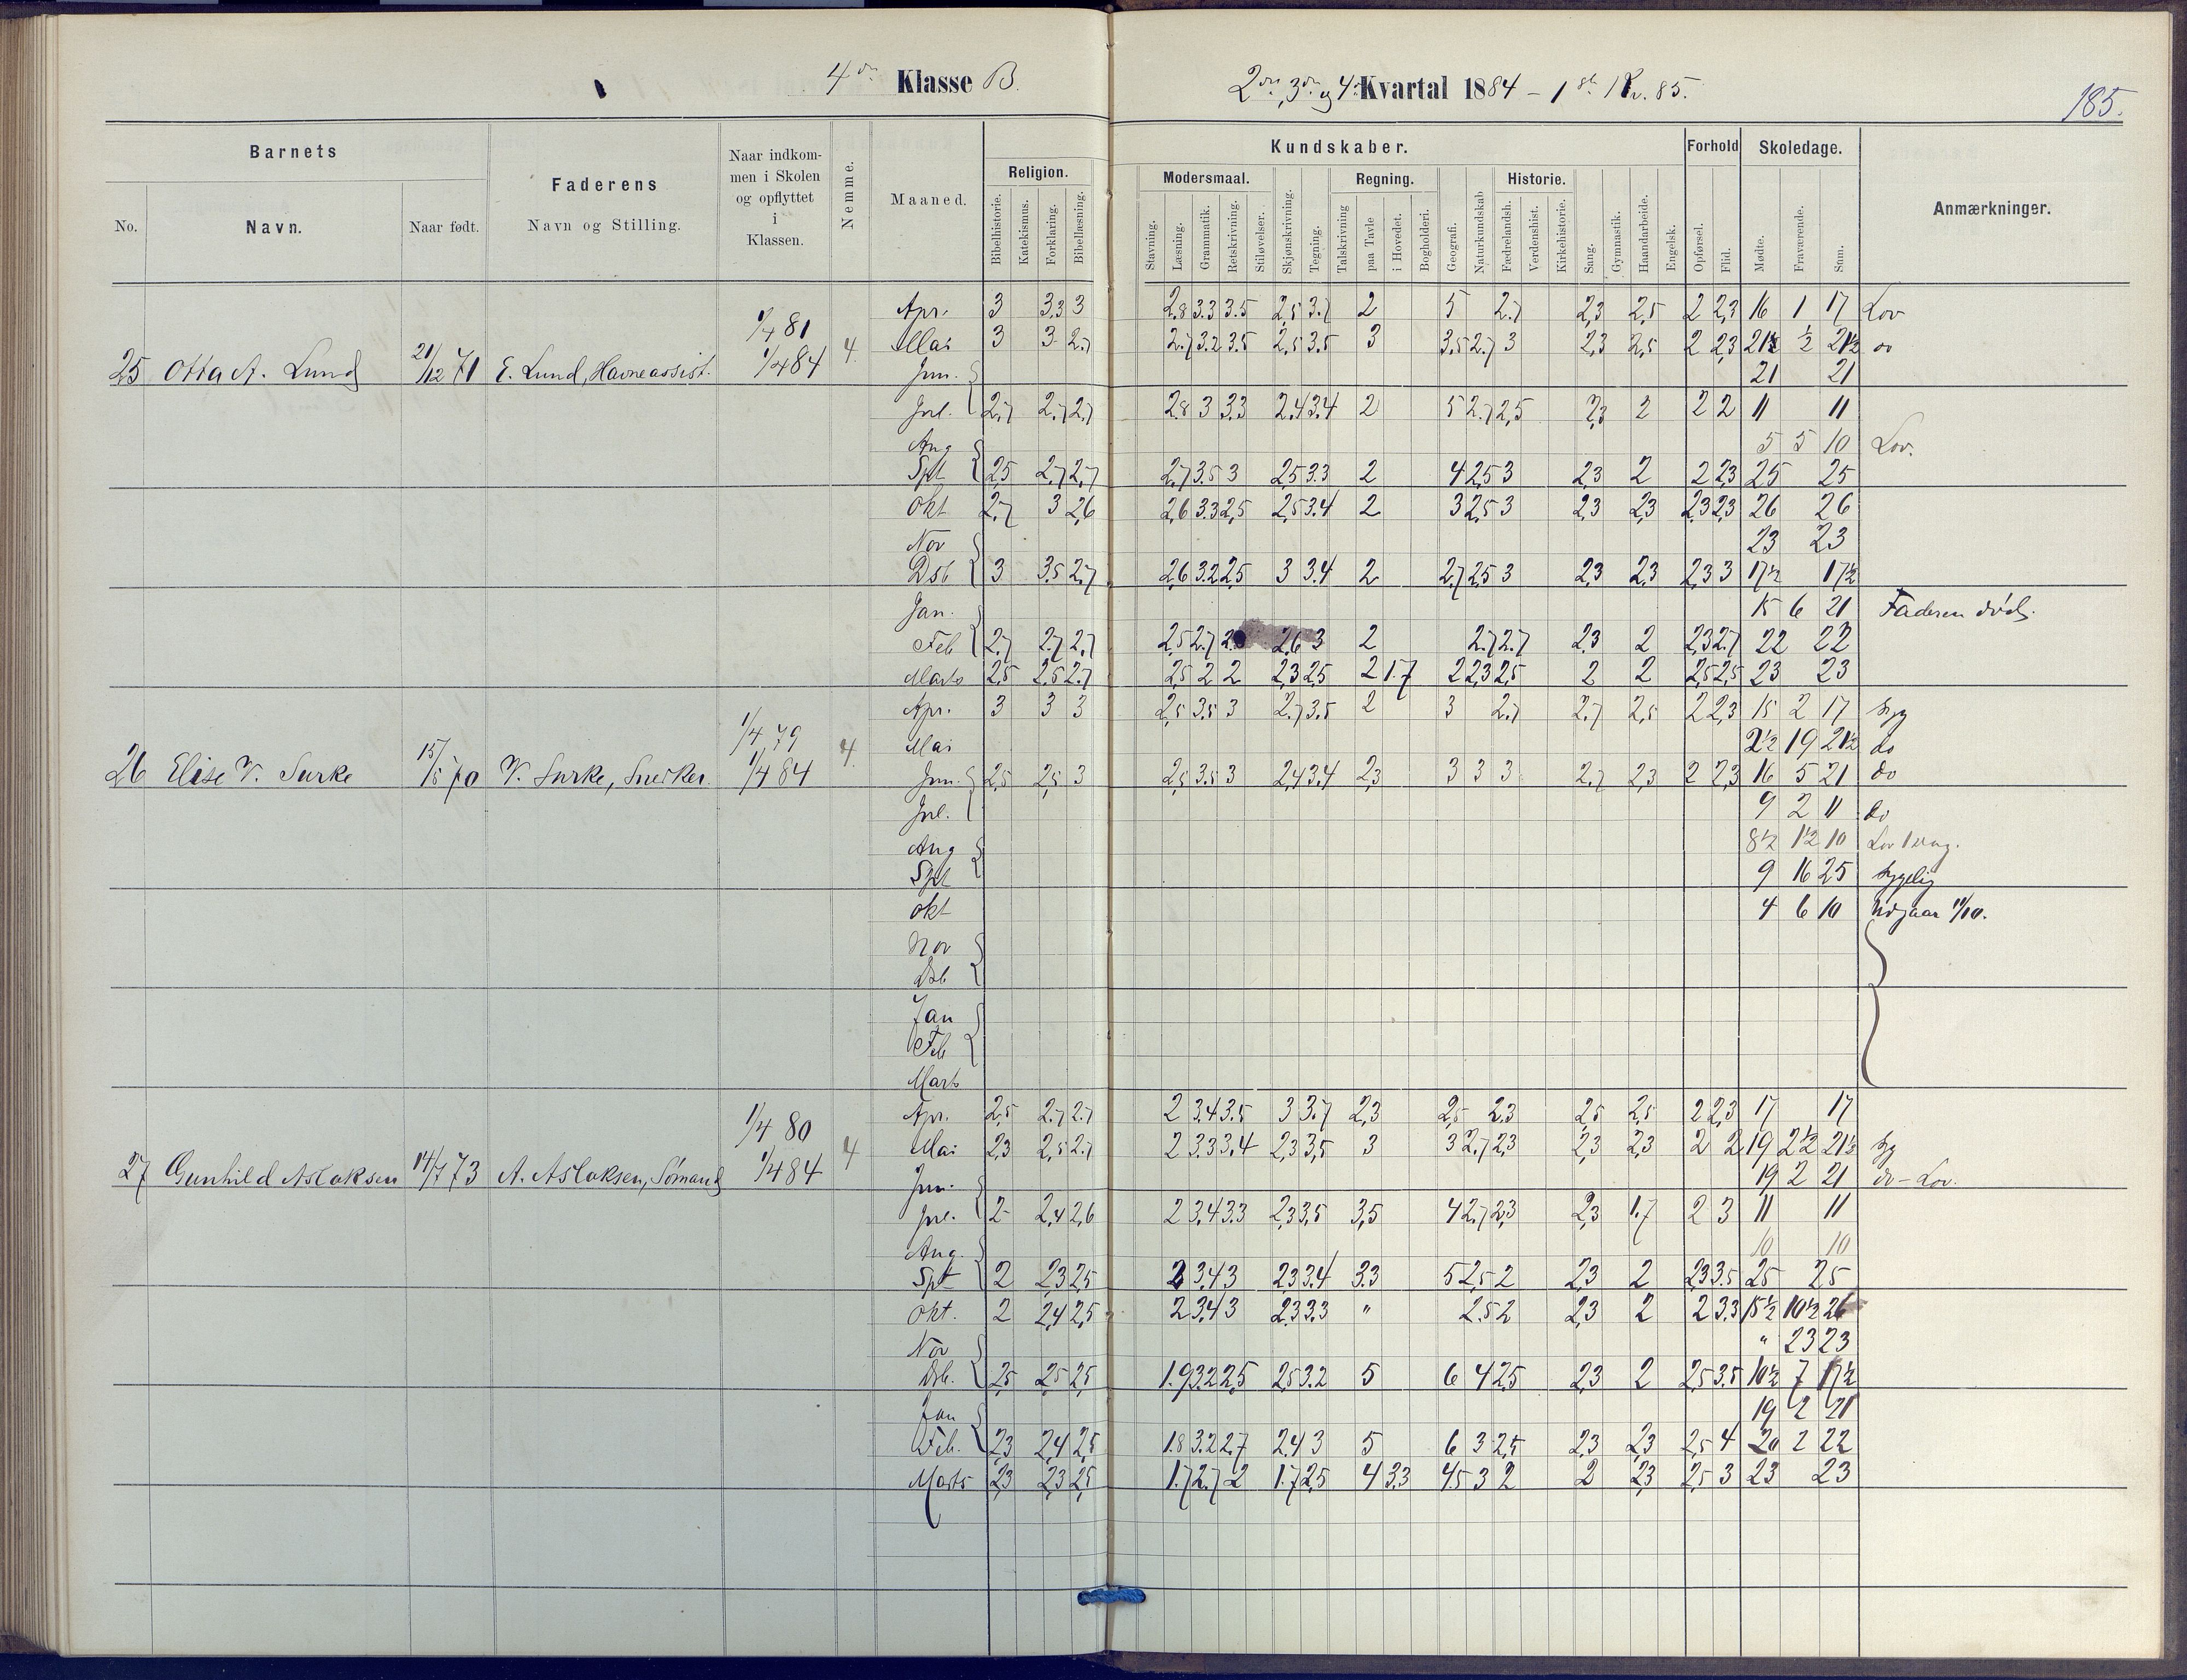 4de Klasse B.
2den, 3die og 4de Kvartal 1884 – 1ste Kv. 85.
185.
Barnets
Faderens
Naar indkommen i Skolen og opflyttet i Klassen.
Nemme.
Maaned.
Kundskaber.
Forhold
Skoledage.
Anmærkninger.
Religion.
Modersmaal.
Regning.
Historie.
No.
Navn.
Naar født.
Navn og Stilling.
Bibelhistorie.
Katekismus.
Forklaring.
Bibellæsning.
Stavning.
Læsning.
Grammatik.
Retskrivning.
Stiløvelser.
Skjønskrivning.
Tegning.
Talskrivning
paa Tavle
i Hovedet.
Bogholderi.
Geografi.
Naturkundskab
Fædrelandsh.
Verdenshist.
Kirkehistorie.
Sang.
Gymnastik.
Haandarbeide.
Engelsk.
Opførsel.
Flid.
Mødte.
Fraværende.
Sum.
25 Otta A. Lund 21/12 71 E. Lund, Havneassist. 1/4 81 1/4 84 4.
Apr. 3 3,3 3 2,8 3.3 3.5 2,5 3.7 2 5 2.7 2,3 2,5 2 2,3 16 1 17 Lov
Mai 3 3 2.7 2.7 3.2 3.5 2,5 3.5 3 3.5 2.7 3 2,3 2,5 2 2,3 21½ ½ 21½ do
Jun. 21 21
Jul. 2.7 2.7 2.7 2.8 3 3.3 2.4 3.4 2 5 2.7 2,5 2,3 2 2 2 11 11
Aug 5 5 10 Lov.
Spt 2,5 2,7 2,7 2,7 3.5 3 2,5 3.3 2 4 2,5 3 2,3 2 2 2,3 25 25
Okt 2,7 3 2,6 2,6 3.3 2,5 2,5 3.4 2 3 2,5 3 2,3 2,3 2,3 2,3 26 26
Nov 23 23
Dsb 3 3.5 2.7 2,6 3.2 2,5 3 3.4 2 2,7 2,5 3 2,3 2,3 2,3 3 17½ 17½
Jan. 15 6 21 Faderen død.
Feb 2,7 2.7 2,7 2,5 2,7 2,6 3 2 2.7 2.7 2,3 2 2,3 2.7 22 22
Marts 2,5 2,5 2.7 2,5 2 2 2,3 2,5 2 1.7 2 2,3 2,5 2 2 2,5 2,5 23 23
26 Elise V. Surke 15/5 70 V. Surke, Snedker. 1/4 79 1/4 84 4.
Apr. 3 3 3 2,5 3.5 3 2.7 3.5 2 3 2.7 2.7 2,5 2 2,3 15 2 17 syg
Mai 2½ 19 21½ do
Jun. 2,5 2,5 3 2,5 3.5 3 2,4 3.4 2,3 3 3 3 2.7 2,3 2 2,3 16 5 21 do
Jul. 9 2 11 do
Aug 8½ 1½ 10
Spt 9 16 25 sygelig
Okt 4 6 10 Udgaar 11/10.
Nov
Dsb
Jan
Feb
Marts
27 Gunhild Aslaksen 14/7 73 A. Aslaksen, Sømand 1/4 80 1/4 84 4
Apr. 2,5 2.7 2.7 2 3.4 3.5 3 3.7 2,3 2,5 2,3 2,5 2,5 2 2,3 17 17
Mai 2,3 2,5 2.7 2 3.3 3,4 2,3 3,5 3 3 2.7 2,3 2,3 2,3 2 2 19 2½ 21½ syg
Jun. 19 2 21 do – Lov.
Jul. 2 2,4 2,6 2 3,4 3.3 2,3 3,5 3,5 4 2.7 2,3 2,3 1.7 2 3 11 11
Aug. 10 10
Spt 2 2,3 2,5 2 3,4 3 2,3 3.4 3.3 5 2,5 2 2,3 2 2,3 3.5 25 25
Okt. 2 2,4 2,5 2 3,4 3 2,3 3.3 " 2.5 2 2,3 2 2 3.3 15½ 10½ 26
Nov " 23 23
Dsb. 2,5 2,5 2,5 1.9 3.2 2,5 2,5 3.2 5 6 4 2,5 2,3 2 2,5 3.5 10½ 7 17½
Jan 19 2 21
Feb. 2,3 2,4 2,5 1.8 3.2 2.7 2,4 3 5 6 3 2,5 2,3 2,3 2,5 4 20 2 22
Marts 2,3 2,3 2,5 1.7 2.7 2 1.7 2,5 4 3.3 4.5 3 2 2 2,3 2,5 3 23 23